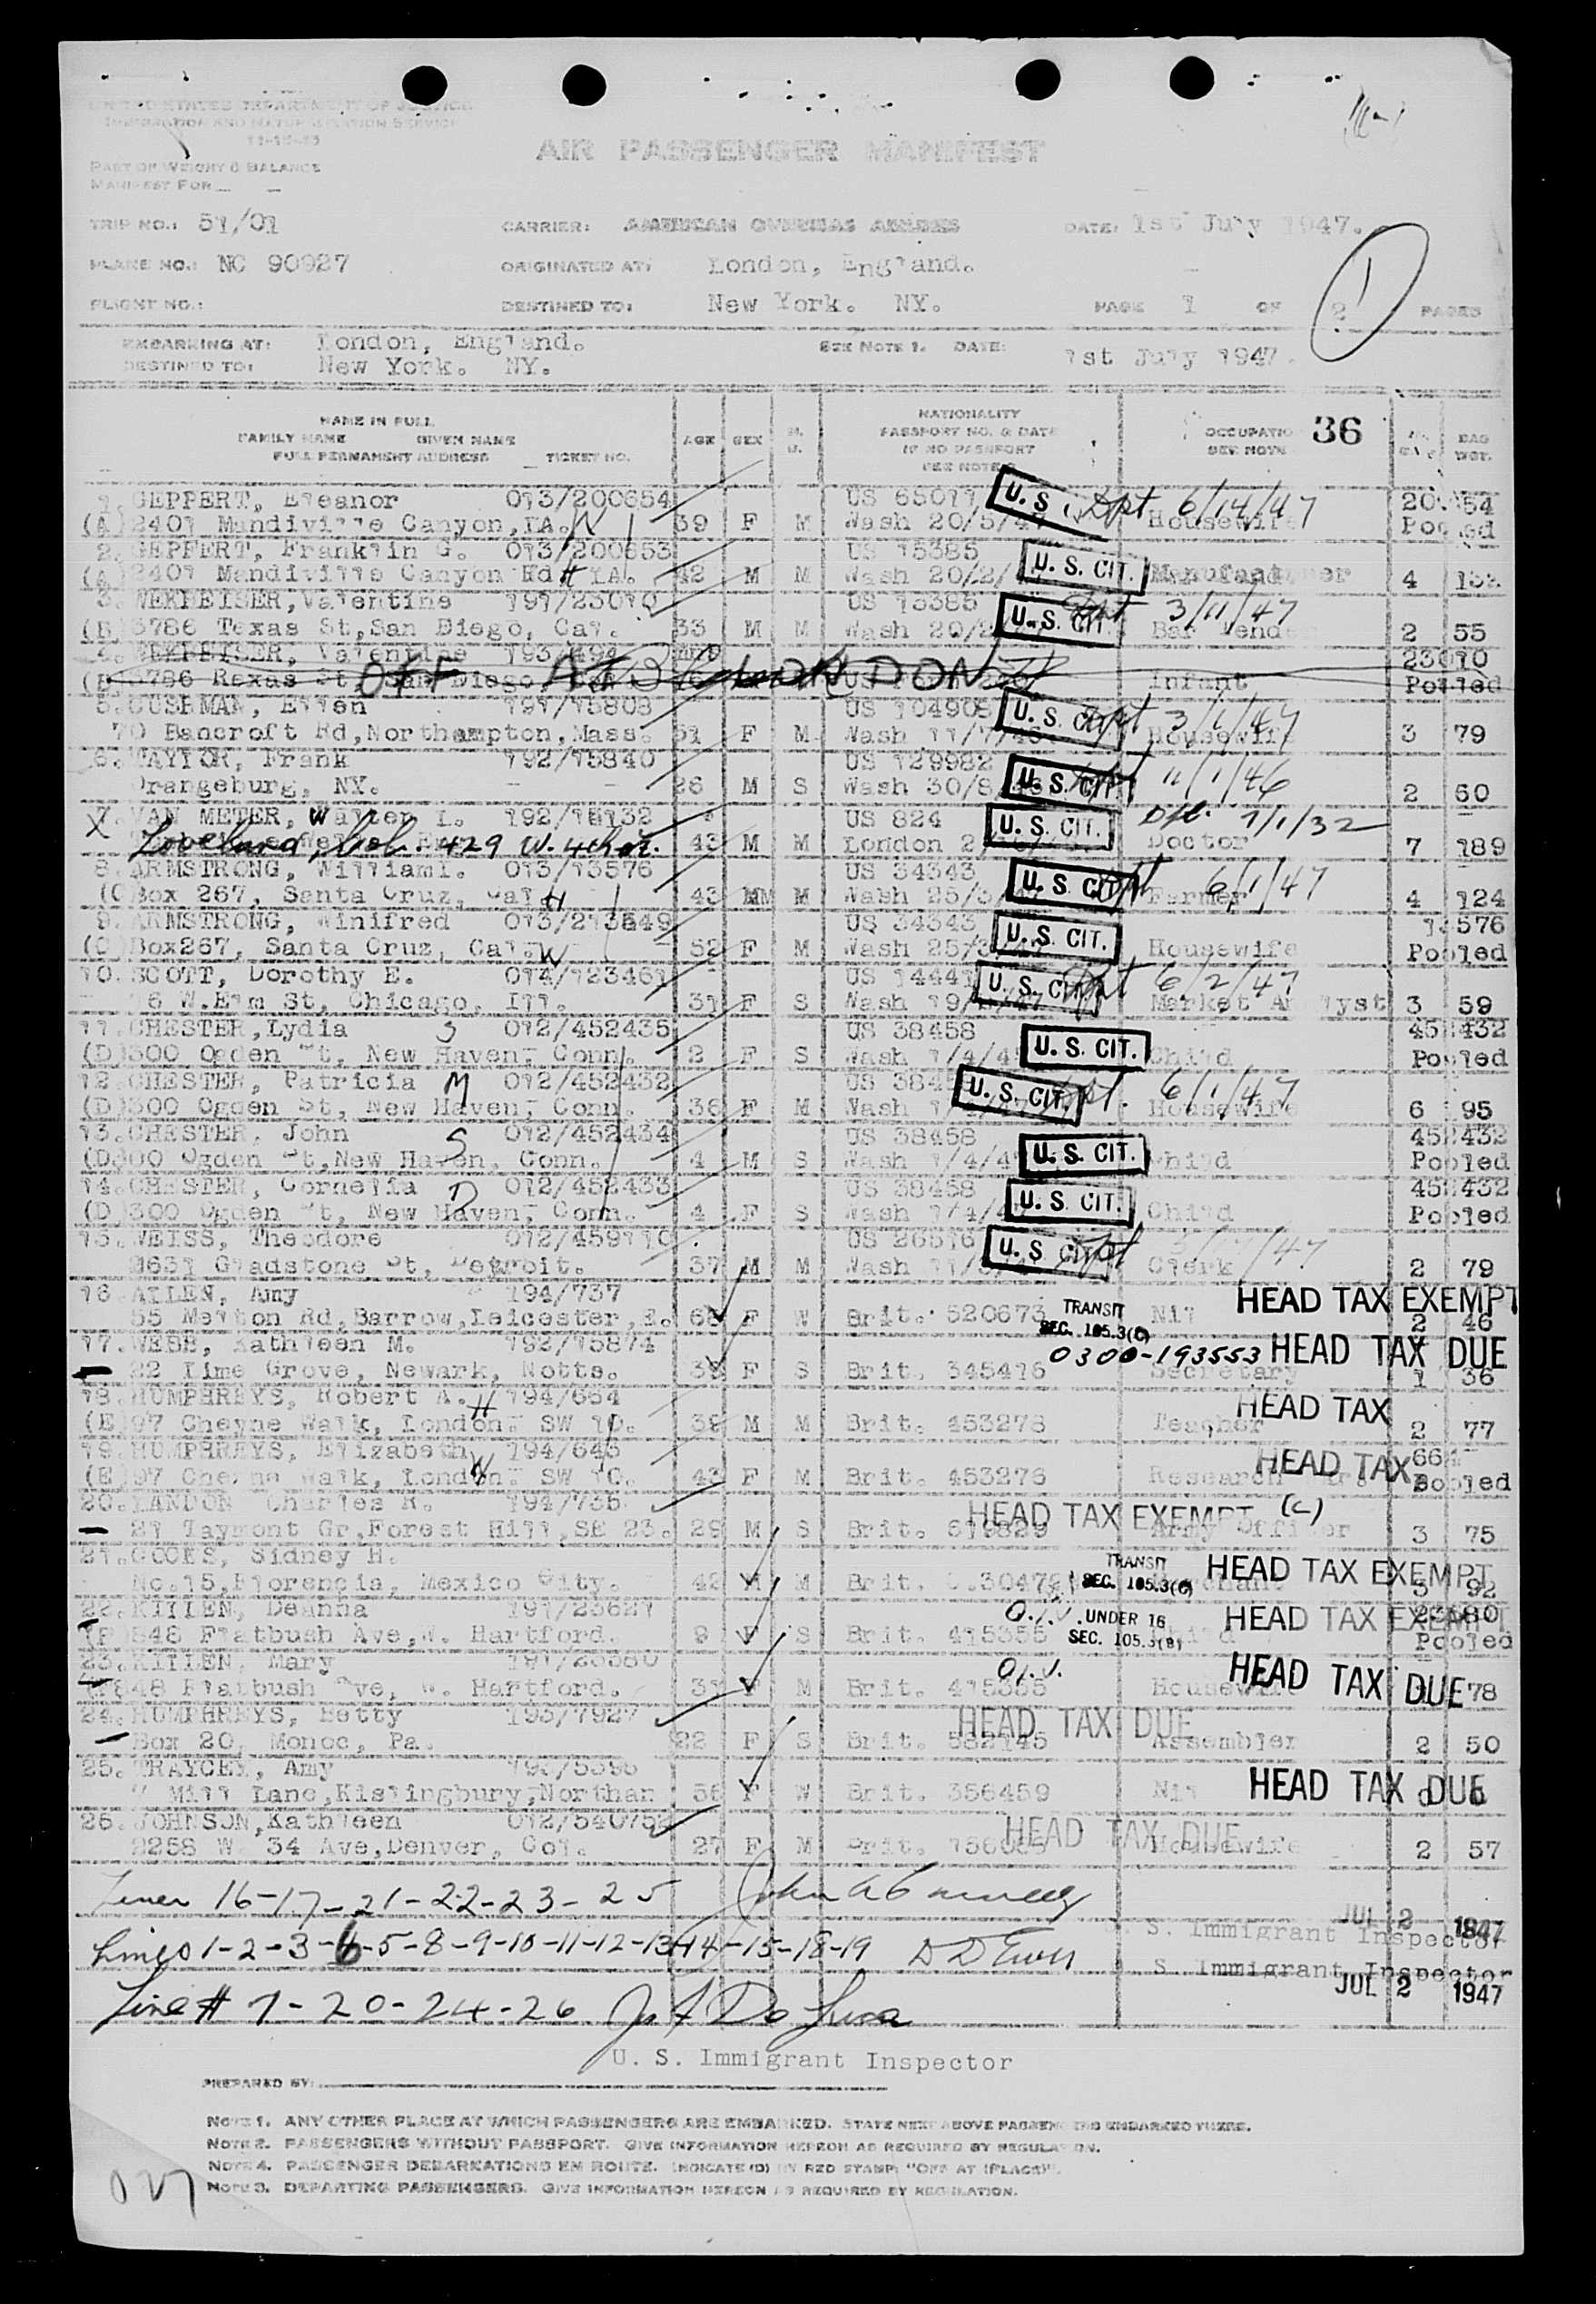 UNITED STATES DEPARTMENT OF JUSTICE
IMMIGRATION AND NATURALIZATION SERVICE
AIR PASSENGER MANIFEST
PART OF WEIGHT & BALANCE
MANIFEST FOR
TRIP NO.: 51/01 CARRIER: AMERICAN OVERSEAS AIRLINES DATE: 1st July 1947.
PLANE NO.: NC 90927 ORIGINATED AT: London, England.
FLIGHT NO.: DESTINED TO: New York. NY. PAGE 1 OF 2 PAGES
1
EMBARKING AT: London, England. SEE NOTE 1. DATE: 1st July 1947.
DESTINED TO: New York. NY.
NAME IN FULL NATIONALITY
FAMILY NAME GIVEN NAME AGE SEX PASSPORT NO. & DATE OCCUPATIO 36 BAG
FULL PERMANENT ADDRESS TICKET NO. IF NO PASSPORT SEE NOTE WGT.
SEE NOTE 2
1. GEPPERT, Eleanor 013/200654 US 65011 U.S. Dpt 6/14/47 54
(A) 2401 Mandiville Canyon, LA. W 39 F M Wash 20/5/4 Housewife Pooled
2. GEPPERT, Franklin G. 013/200653 US 15385 U. S. CIT.
(A) 2401 Mandiville Canyon Rd H LA. 42 M M Wash 20/2/ Manufacturer 4 132
3. WERHEISER, Valentine 191/23010 US 13385 U.S. CIT. Dpt 3/11/47
(B) 3786 Texas St, San Diego, Cal. 33 M M Wash 20/2 Bar Tend 2 55
4. WERHEISER, Valentine 193/494 23010
(B) 3786 Rexas St, San Diego OFF AT LONDON Infant Pooled
5. CUSHMAN, Ellen 191/15808 US 104905 U. S. CIT. Dpt 3/1/47
70 Bancroft Rd, Northampton, Mass. 51 F M Wash 11/7/46 Housewife 3 79
6. TAYLOR, Frank 192/15840 US 129982 U. S. CIT. Dpt 11/1/46
Orangeburg, NY. 26 M S Wash 30/8 2 60
X 7. VAN METER, Walter L. 192/15132 US 824 U. S. CIT. Dpt. 7/1/32
Loveland, Col. 429 W. 4th St. 43 M M London 2 Doctor 7 189
8. ARMSTRONG, William L. 013/13576 US 34343 U. S. CIT. Dpt 6/1/47
(C) Box 267, Santa Cruz, Cal H 43 M M Wash 25/3/ Farmer 4 124
9. ARMSTRONG, Winifred 013/213549 US 34343 U. S. CIT. 13576
(C) Box267, Santa Cruz, Cal. W 52 F M Wash 25/3 Housewife Pooled
10. SCOTT, Dorothy E. 014/123461 US 14441 U. S. CIT. Dpt 6/2/47
16 W. Elm St, Chicago, Ill. 31 F S Wash 19/ /47 Market Analyst 3 59
11. CHESTER, Lydia S 012/452435 US 38458 U. S. CIT. 452432
(D) 300 Ogden St, New Haven, Conn. 2 F S Wash 1/4/4 Child Pooled
12. CHESTER, Patricia M 012/452432 US 3845 U. S. CIT. Dpt. 6/1/47
(D) 300 Ogden St, New Haven, Conn. 36 F M Wash 1/ Housewife 6 95
13. CHESTER, John S 012/452434 US 38458 U. S. CIT. 452432
(D) 300 Ogden St, New Haven, Conn. 4 M S Wash 1/4/4 Child Pooled
14. CHESTER, Cornelia D 012/452433 US 38458 U. S. CIT. 452432
(D) 300 Ogden St, New Haven, Conn. 4 F S Wash 1/4/4 Child Pooled
15. WEISS, Theodore 012/459110 US 26516 U. S. CIT. Dpt /47
2651 Gladstone St, Detroit. 37 M M Wash 11/ Clerk 2 79
16. ALLEN, Amy 194/737 HEAD TAX EXEMPT
55 Melton Rd, Barrow, Leicester, E. 68 F W Brit. 520673 TRANSIT SEC. 105.3(C) Nil 2 46
17. WEBB, Kathleen M. 192/15874 0300-193553 HEAD TAX DUE
22 Lime Grove, Newark, Notts. 39 F S Brit. 345416 Secretary 1 36
18. HUMPHREYS, Robert A. H 194/664 HEAD TAX
(E) 97 Cheyne Walk, London. SW 10. 39 M M Brit. 453278 Teacher 2 77
19. HUMPHREYS, Elizabeth W 194/645 HEAD TAX 664
(E) 97 Cheyne Walk, London. SW 10. 43 F M Brit. 453276 Research Pooled
20. LANDON Charles R. 194/735 HEAD TAX EXEMPT (C)
21 Taymont Gr, Forest Hill, SE 23. 29 M S Brit. 619829 Army Officer 3 75
21. COOKS, Sidney H. TRANSIT HEAD TAX EXEMPT
No.15, Florencia, Mexico City. 42 M M Brit. SEC. 105.3(C) Merchant 3 92
22. KILLEN, Deanna 191/23621 O.I.V. UNDER 16 HEAD TAX EXEMPT 23580
(F) 848 Flatbush Ave, W. Hartford. 9 F S Brit. 415355 SEC. 105.3(B) Child Pooled
23. KILLEN, Mary 191/23580 O.I.V. HEAD TAX DUE
(F) 848 Flatbush Ave, W. Hartford. 31 F M Brit. 415355 Housewife 78
24. HUMPHREYS, Betty 193/7927 HEAD TAX DUE
Box 20, Monoc, Pa. 22 F S Brit. 582145 Assembler 2 50
25. TRAYCEY, Amy 193/5595 HEAD TAX DUE
Mill Lane, Kislingbury, Northan 56 F W Brit. 356459 Nil
26. JOHNSON, Kathleen 012/540752 HEAD TAX DUE
2258 W. 34 Ave, Denver, Col. 27 F M Brit. Housewife 2 57
Lines 16-17-21-22-23-25 JUL 2 1947
S. Immigrant Inspector
Lines 1-2-3-6-5-8-9-10-11-12-13-14-15-18-19
S. Immigrant Inspector
JUL 2 1947
Line # 7-20-24-26
U. S. Immigrant Inspector
PREPARED BY:
NOTE 1. ANY OTHER PLACE AT WHICH PASSENGERS ARE EMBARKED. STATE NEXT ABOVE PASSENGERS EMBARKED THERE.
NOTE 2. PASSENGERS WITHOUT PASSPORT. GIVE INFORMATION HEREON AS REQUIRED BY REGULATION.
NOTE 4. PASSENGER DEBARKATIONS EN ROUTE. INDICATE (D) IN RED STAMP "OFF AT (PLACE)".
NOTE 3. DEPARTING PASSENGERS. GIVE INFORMATION HEREON AS REQUIRED BY REGULATION.
027